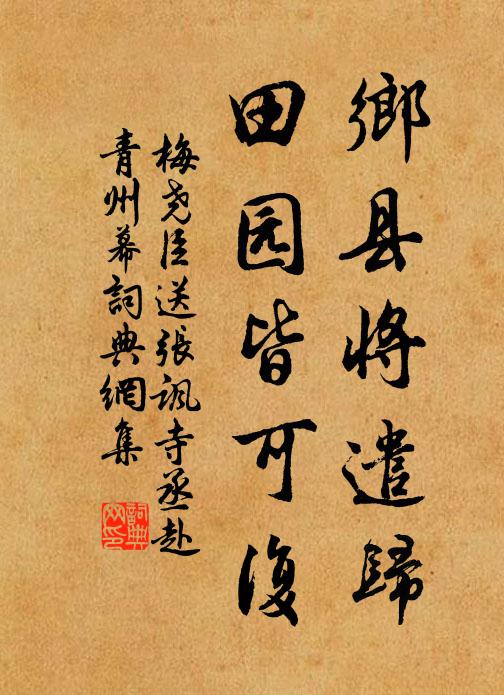 鄉县將遣歸
田园皆可復
梅堯臣送張諷寺丞赴
青州幕詞典網集
詞典
网印